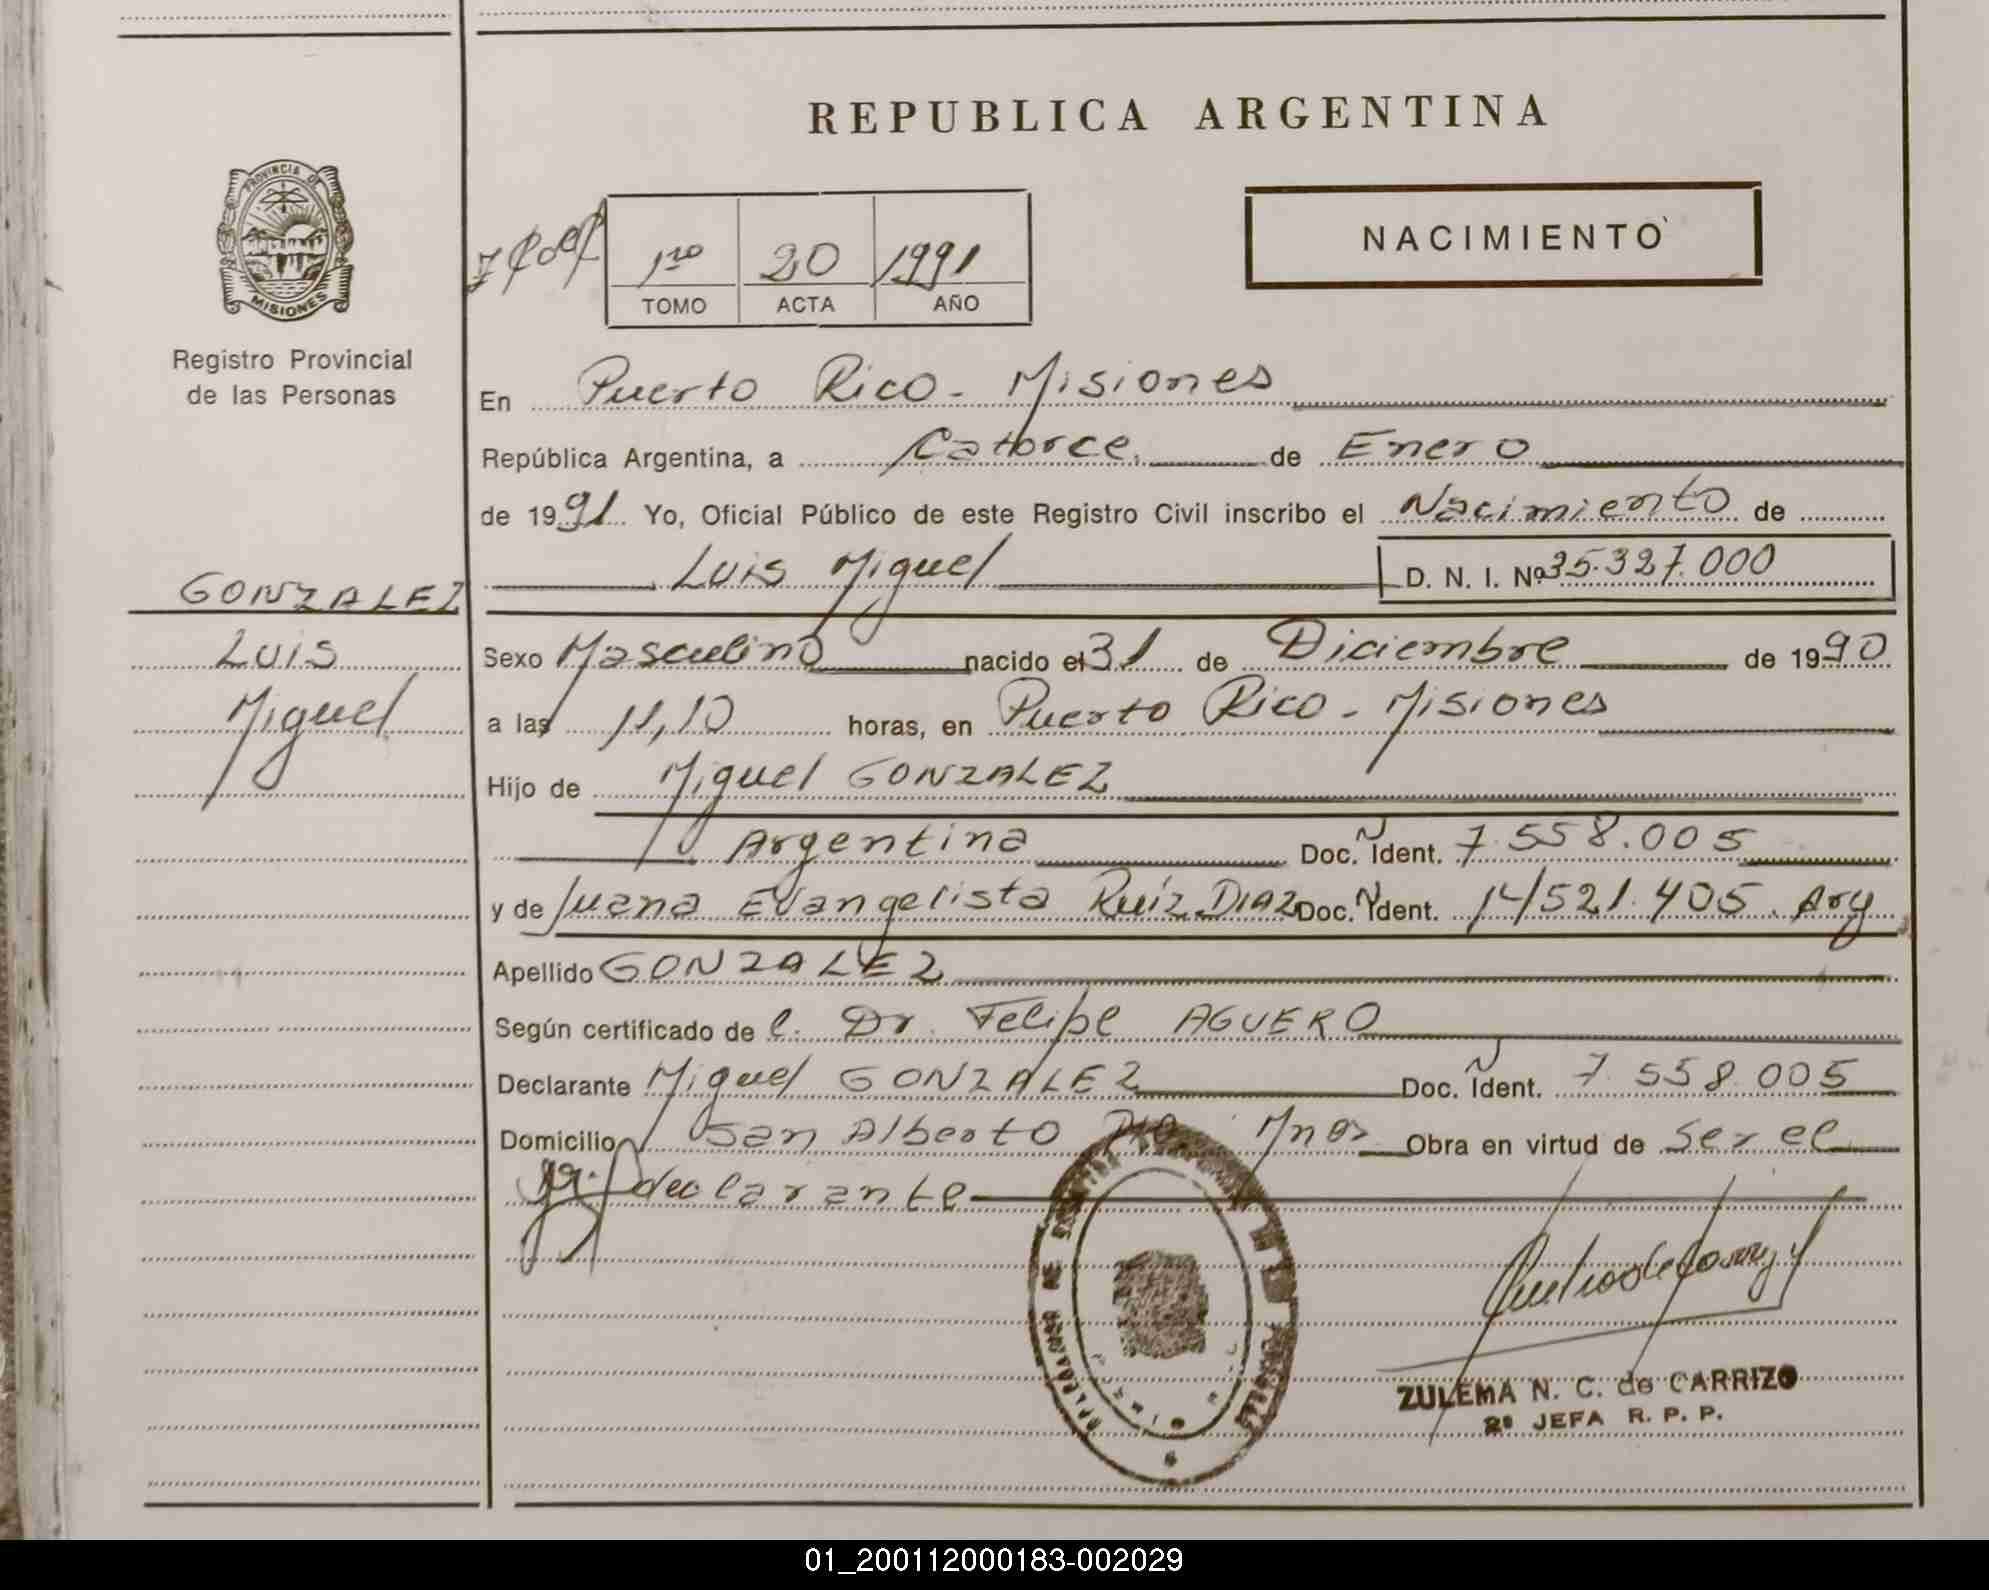 REPUBLICA ARGENTINA
PROVINCIA DE
MISIONES
Registro Provincial
de las Personas
1ro 20 1991
TOMO ACTA AÑO
NACIMIENTO
En Puerto Rico - Misiones
República Argentina, a Catorce de Enero
de 1991 Yo, Oficial Público de este Registro Civil inscribo el Nacimiento de
Luis Miguel D. N. I. Nº 35.327.000
GONZALEZ
Luis
Miguel
Sexo Masculino nacido el 31 de Diciembre de 1990
a las 11,10 horas, en Puerto Rico - Misiones
Hijo de Miguel GONZALEZ
Argentina Doc. Ident. 7.558.005
y de Juana Evangelista Ruiz DIAZ Doc. Ident. 14/521.405. Arg
Apellido GONZALEZ
Según certificado de l. Dr. Felipe AGUERO
Declarante Miguel GONZALEZ Doc. Ident. 7.558.005
Domicilio San Alberto Pto Mnes Obra en virtud de ser el
declarante
ZULEMA N. C. de CARRIZO
2º JEFA R. P. P.
01_200112000183-002029